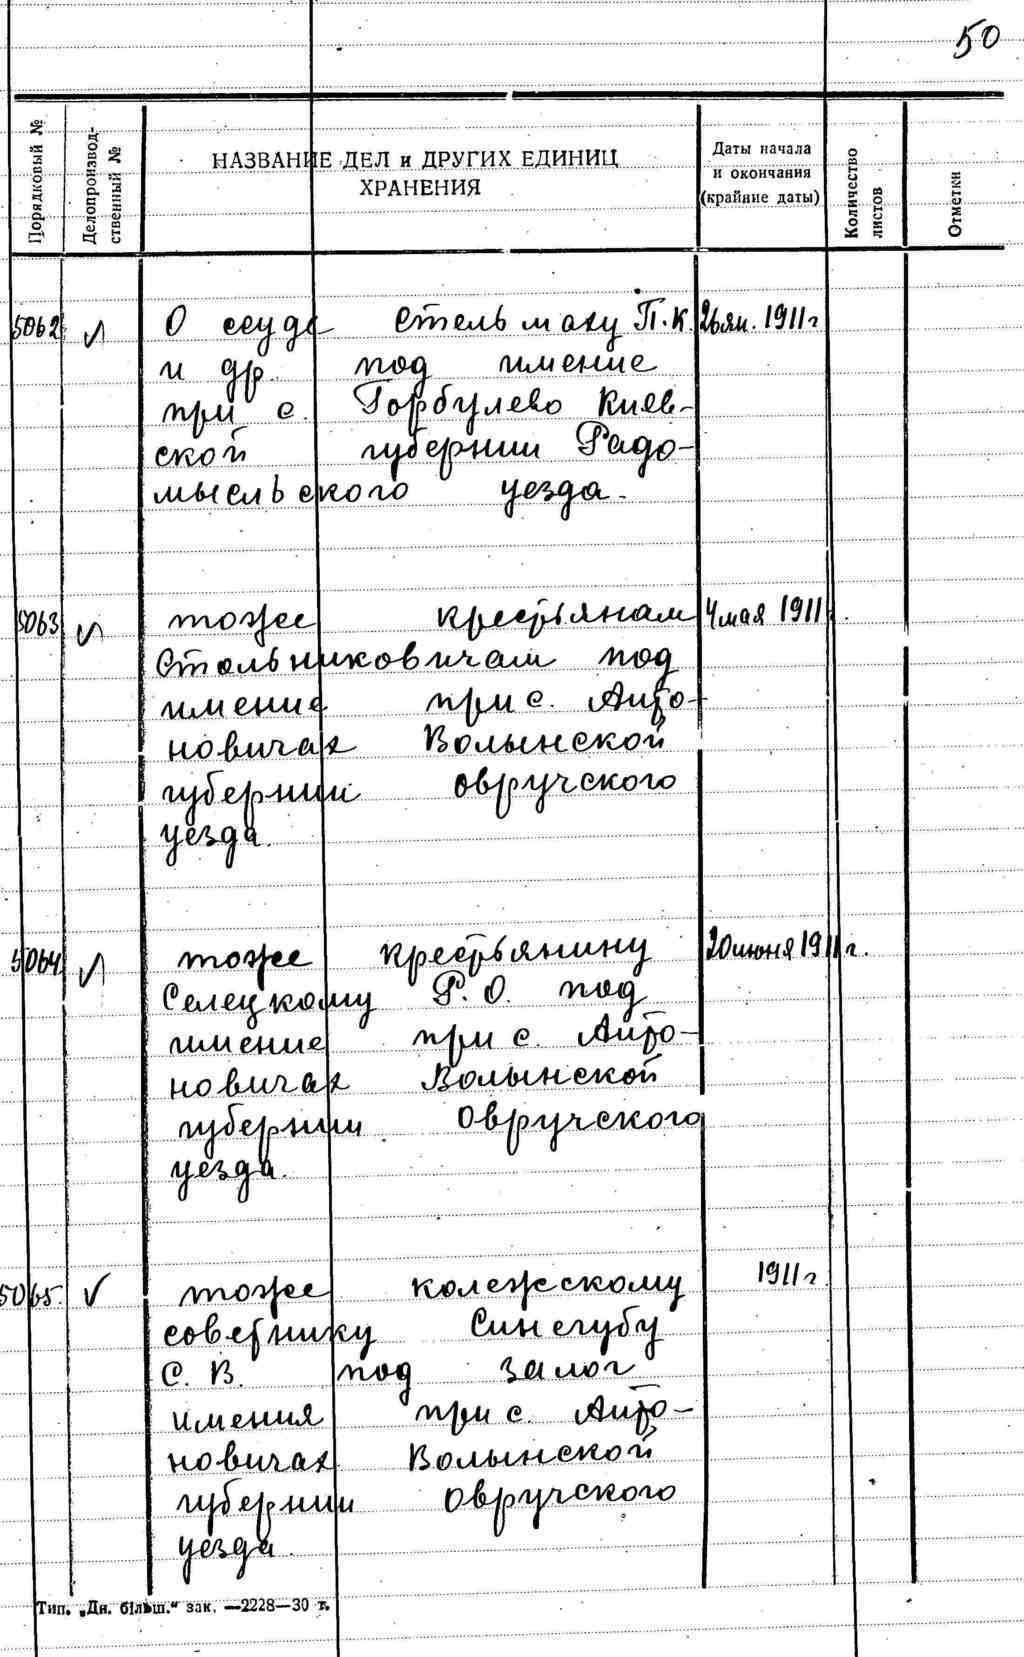 50
Порядковый №
Делопроизвод-
ственный №
НАЗВАНИЕ ДЕЛ и ДРУГИХ ЕДИНИЦ
ХРАНЕНИЯ
Даты начала
и окончания
(крайние даты)
Количество
листов
Отметки
5062 ✓ О ссуде Стельмаху П.К 26 ян. 1911 г
и др. под имение
при с. Горбулево Киев-
ской губернии Радо-
мысльского уезда.
5063 ✓ тоже крестьянам 4 мая 1911
Стольниковичам под
имение при с. Анто-
новичах Волынской
губернии овручского
уезда.
5064 ✓ тоже крестьянину 20 июня 1911 г.
Селецкому Р. О. под
имение при с. Анто-
новичах Волынской
губернии Овручского
уезда.
5065. ✓ тоже колежскому 1911 г.
советнику Синегубу
С. В. под залог
имения при с. Анто-
новичах Волынской
губернии Овручского
уезда.
Тип. „Дн. більш.“ зак. —2228—30 т.